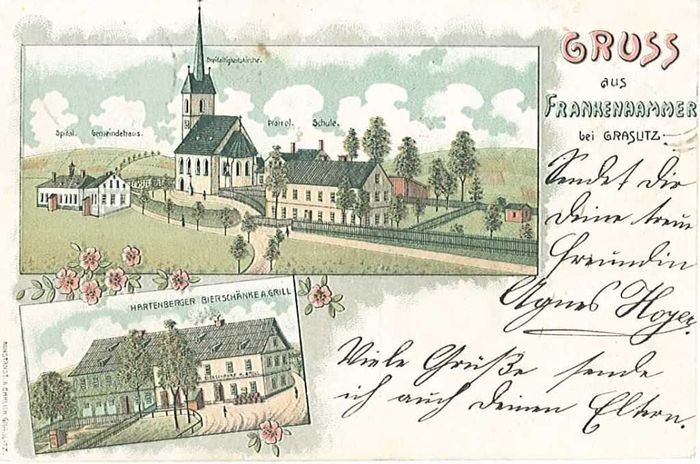 GRUSS
aus
FRANKENHAMMER
bei GRASLITZ
Dreifaltigkeitskirche.
Spital. Gemeindehaus.
Pfarrei. Schule.
Sendet Dir
Deine treue
Freundin
Agnes Hoyer
HARTENBERGER BIERSCHÄNKE A. GRILL
Viele Grüße sende
ich auch Deinen Eltern.